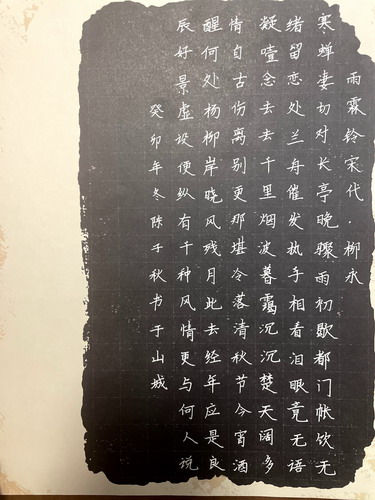 雨霖铃宋代·柳永
寒蝉凄切对长亭晚骤雨初歇都门帐饮无
绪留恋处兰舟催发执手相看泪眼竟无语
凝噎念去去千里烟波暮霭沉沉楚天阔多
情自古伤离别更那堪冷落清秋节今宵酒
醒何处杨柳岸晓风残月此去经年应是良
辰好景虚设便纵有千种风情更与何人说
癸卯年冬陈子秋书于山城